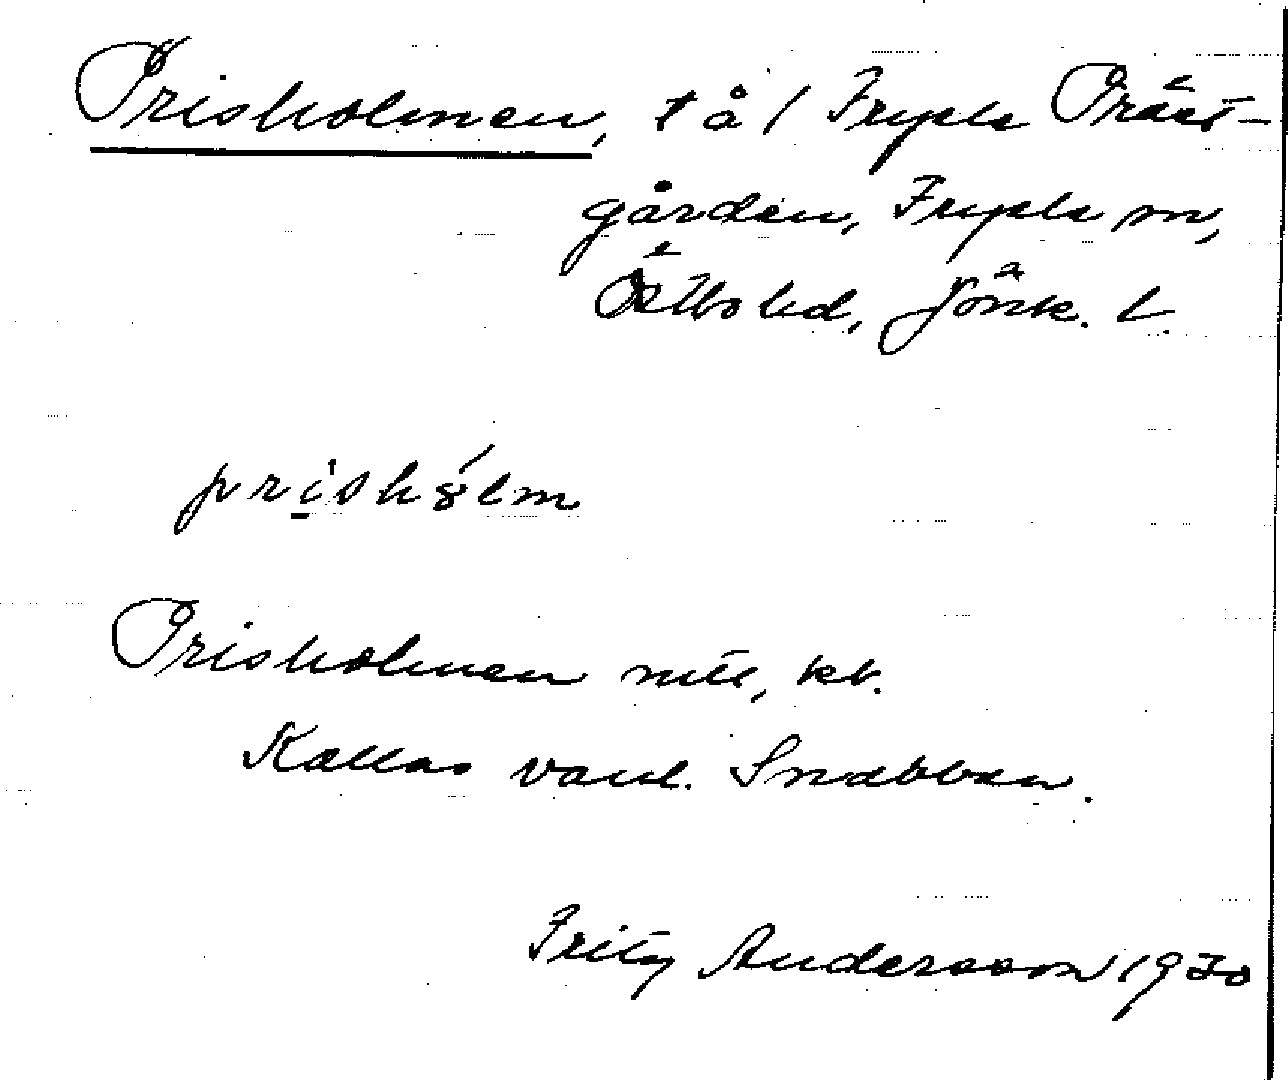 Prisholmen, t å / Fryele Präst-
gården, Fryele sn,
Östbo hd, Jönk. l.
prishólm
Prisholmen utt., kb.
Kallas vanl. Snabben.
Fritz Andersson 1930